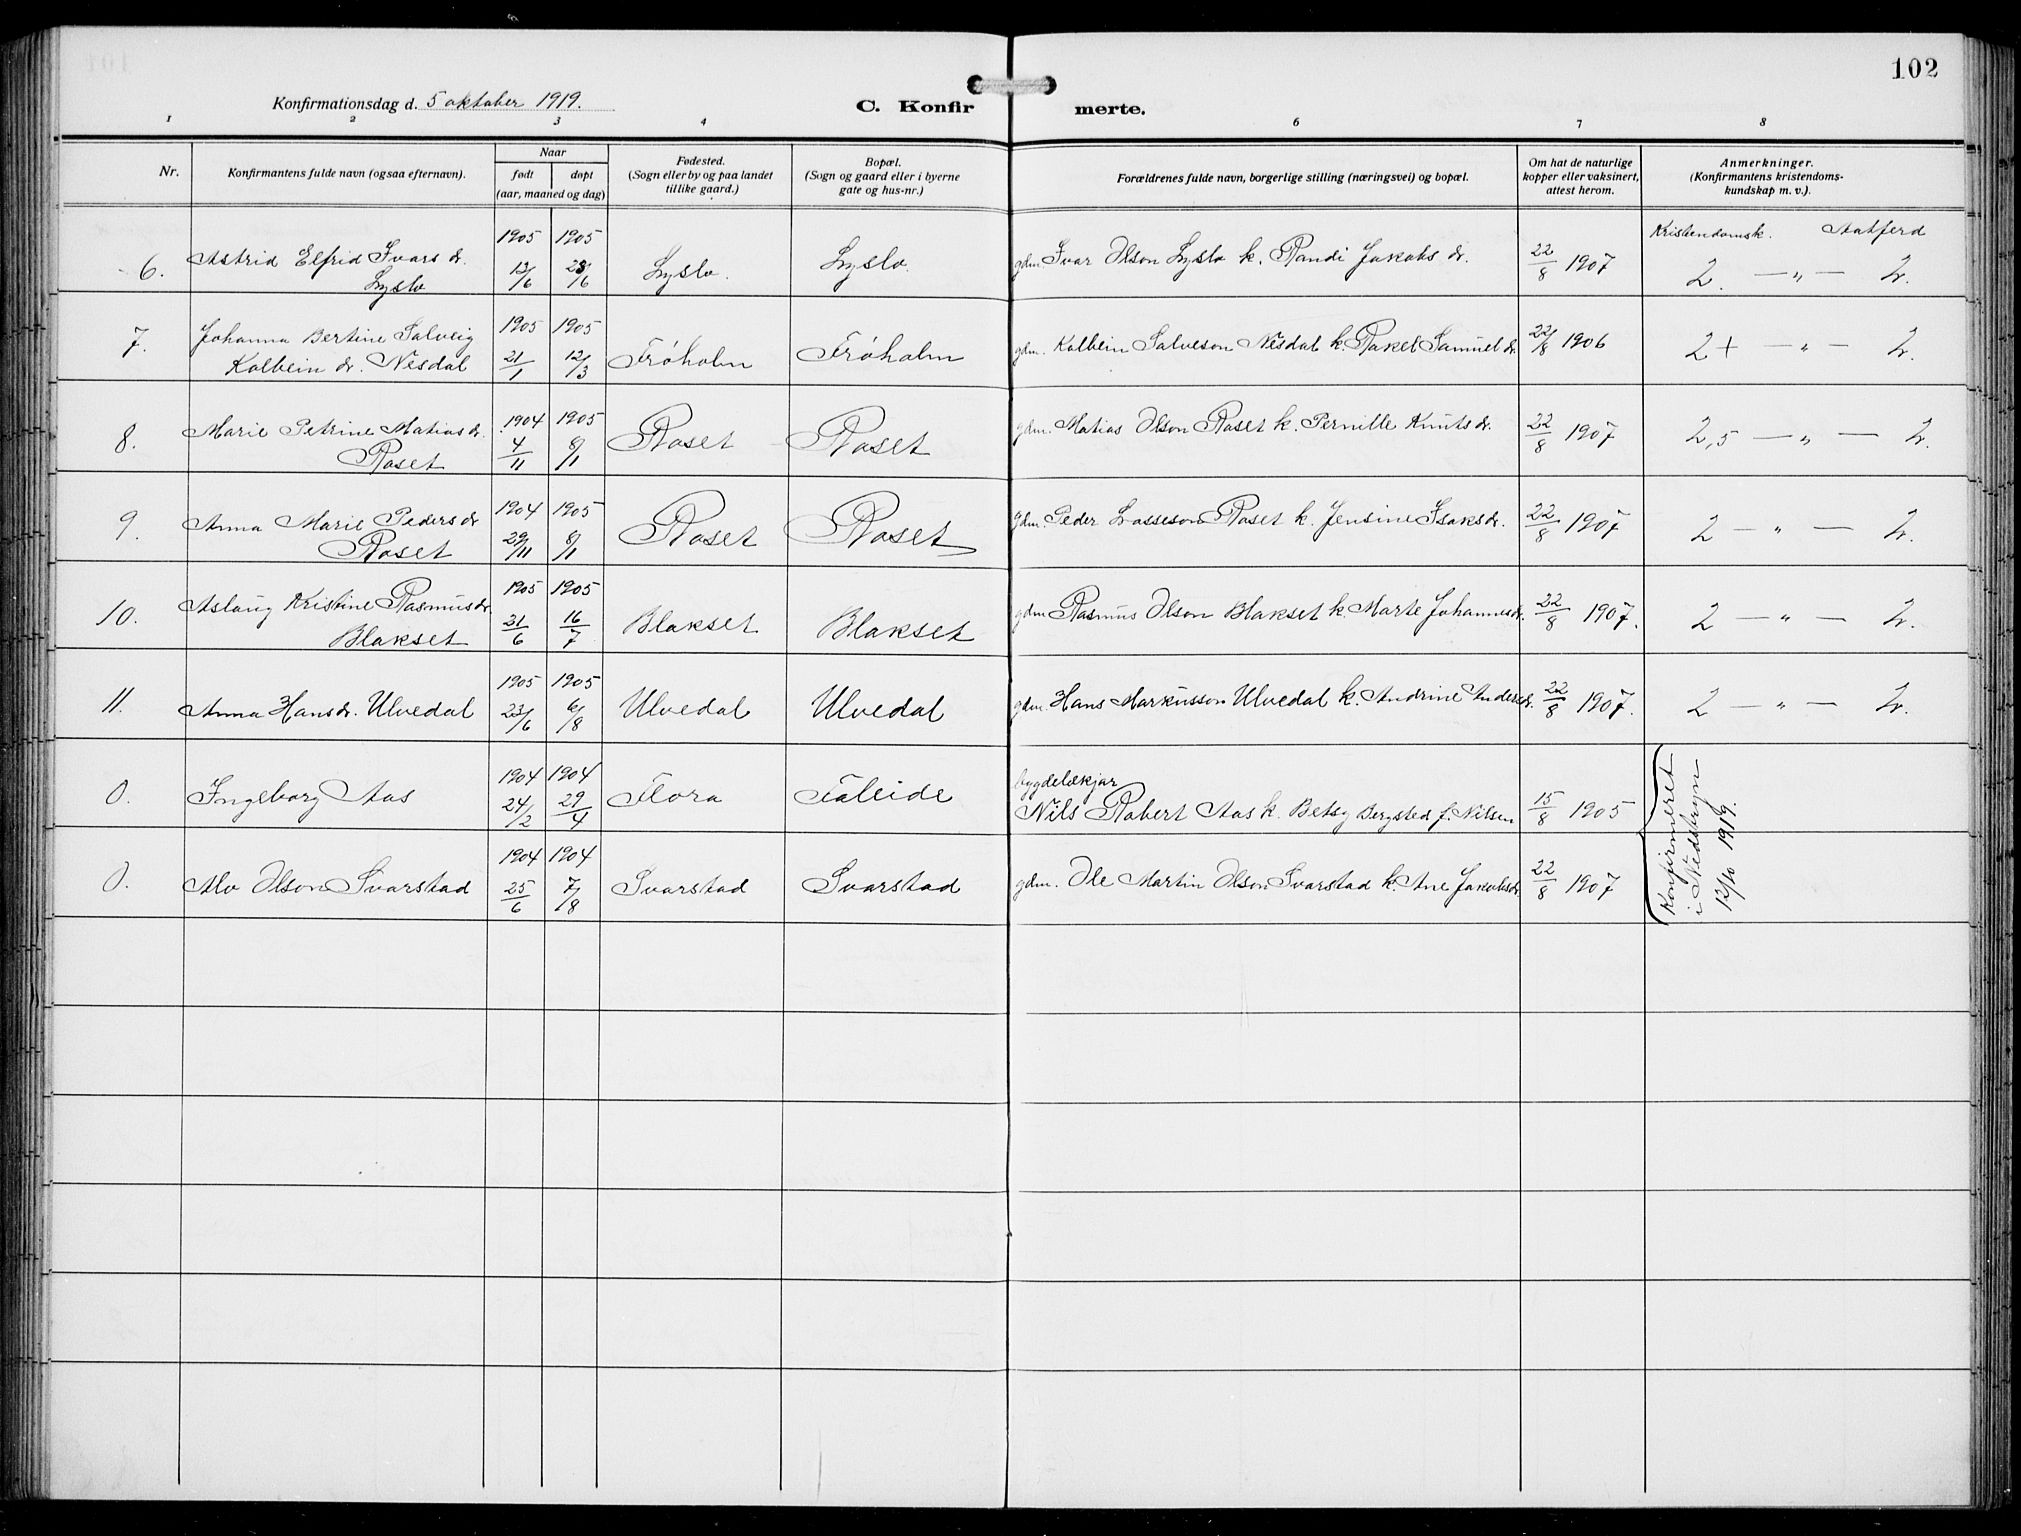 102
Konfirmationsdag d. 5 oktober 1919.
C. Konfir merte.
1 2 3 4 6 7 8
Nr.
Konfirmantens fulde navn (ogsaa efternavn).
Naar
født døpt
(aar, maaned og dag)
Fødested.
(Sogn eller by og paa landet
tillike gaard.)
Bopæl.
(Sogn og gaard eller i byerne
gate og hus-nr.)
Forældrenes fulde navn, borgerlige stilling (næringsvei) og bopæl.
Om hat de naturlige
kopper eller vaksinert,
attest herom.
Anmerkninger.
(Konfirmantens kristendoms-
kundskap m. v.).
Kristendomsk. Aatferd
1905 1905
6. Astrid Elfrid Ivars dr. 12/6 25/6 Lyslo. Lyslo. gdm. Ivar Olson Lyslo k. Randi Jakobs dr. 22/8 1907 2. — „ — 2.
Lyslo
1905 1905
7. Johanna Bertine Salveig 21/1 12/3 Frøholm Frøholm gdm. Kolbein Salveson Nesdal k. Rakel Samuel dr. 22/8 1906 2+ — „ — 2.
Kolbein dr. Nesdal
1904 1905
8. Marie Petrine Matias dr. 4/11 8/1 Roset Roset gdm. Matias Olson Roset k. Pernille Knuts dr. 22/8 1907 2,5 — „ — 2.
Roset
1904 1905
9. Anna Marie Peders dr 29/11 8/1 Roset Roset gdm. Peder Lasseson Roset k. Jensine Isaksdr. 22/8 1907 2 — „ — 2.
Roset
1905 1905
10. Aslaug Kristine Rasmusdr. 21/6 16/7 Blakset Blakset gdm. Rasmus Olson Blakset k. Marte Johannesdr. 22/8 1907. 2 — „ — 2.
Blakset
1905 1905
11. Anna Hansdr. Ulvedal 23/6 6/8 Ulvedal Ulvedal gdm. Hans Markusson Ulvedal k. Andrine Andersdr. 22/8 1907. 2 — „ — 2.
1904 1904
bygdelækjar
0. Ingeborg Aas 24/2 29/4 Flora Faleide Nils Robert Aas k. Betsy Bergsted f. Nilsen 15/8 1905
1904 1904
0. Alv Olson Svarstad 25/6 7/8 Svarstad Svarstad gdm. Ole Martin Olson Svarstad k. Ane Jakobsdr. 22/8 1907
Konfirmeret
i Nedstryn
12/10 1919.